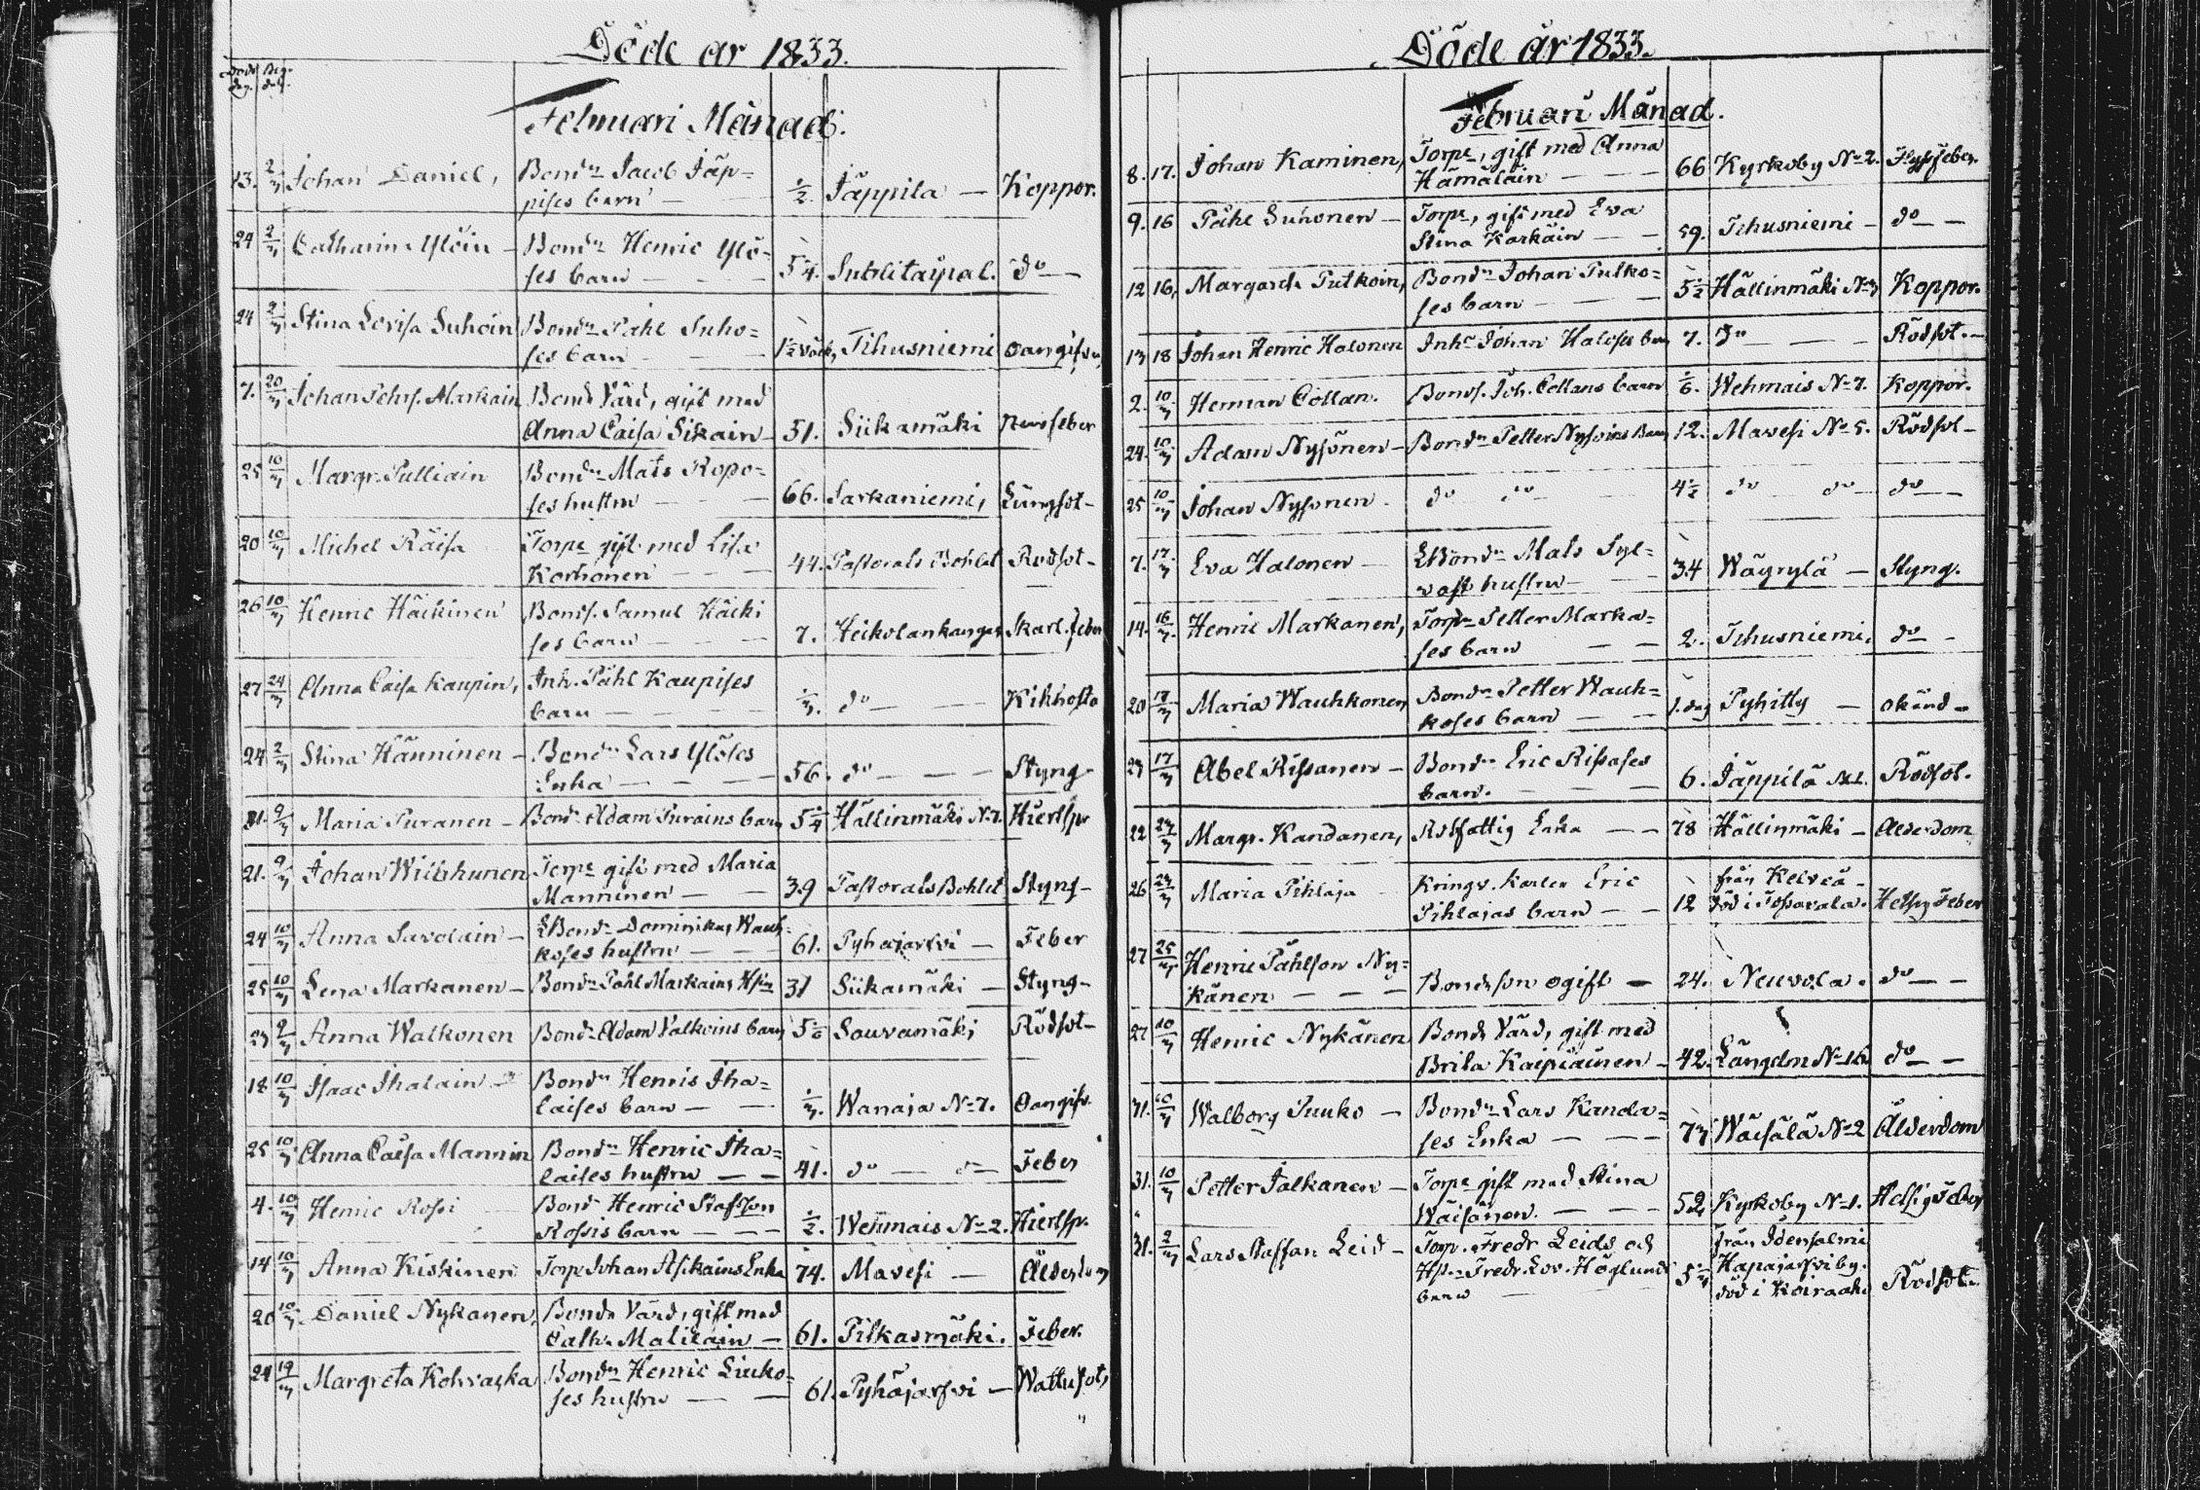 Döde år 1833.
Döds dag. Beg. dag.
Februari Månad.
13. 2/3 Johan Daniel, Bondn Jacob Jäp=
pises barn — 1/2. Jäppila — Koppor.
24 2/3 Catharina Ylöin — Bondn Henric Ylö=
ses barn — — 5 1/4. do —
24 2/3 Stina Lovisa Suhoin Bondn Påhl Suho=
ses barn — — Tihusniemi oangifven
7. 20/3 Johan Pehrs. Markain Bonde Värd, gift med
Anna Caisa Sikain — 51. Siikamäki Nervfeber
25 10/3 Margr. Pulliain Bondn Mats Ropo=
ses hustru — — 66. Sarkaniemi, Lungsot —
20 10/3 Michel Räisä Torpr gift med Lisa
Korhonen — — 44. Pastorals Bohlet Rödsot —
26 10/3 Henric Häikinen Bonds. Samuel Häiki
ses barn — — 7. Heikolankangas Skarl. feber
27 24/3 Anna Caisa Kaupin, Inh. Påhl Kaupises
barn — — do — — Kikhosta
24 2/3 Stina Hänninen — Bondn Lars Ylöses
Enka — — 56. do — — Styng —
21. 9/3 Maria Puranen — Bondn Adam Purains barn 5 1/4 Hällinmäki No 7. Hiertspr
21. 9/3 Johan Torpr gift med Maria
Manninen — — 39 Pastorals Bohlet Styng —
24 10/3 Anna Savolain — EBondn Dominikus Wauh=
koses hustru — — 61. Pyhäjärfvi — Feber
25 10/3 Lena Markanen — Bondn Påhl Markains Hstru 31 Siikamäki — Styng —
23 9/3 Anna Walkonen Bondn Adam Valkoins barn 5 1/6 Sauvamäki Rödsot —
18 10/3 Isaac Ihalain — Bondn Henric Iha=
laises barn — — Wanaja No 7. Oangifv.
25 10/3 Anna Caisa Mannin Bondn Henric Iha=
laises hustru — — 41. do — do — Feber
4. 10/3 Henric Rossi Bondn Henric Stafsson
Rossis barn — — 1/2. Wehmais No 2. Hiertspr.
14 10/3 Anna Kiskinen Torpr Johan Asikains Enka 74. Mavesi — Ålderdom
20 10/3 Daniel Nykänen, Bonde Värd, gift med
Cath. Malilain — 61. Pitkasmäki. Feber.
24 19/3 Margreta Kohvaska Bondn Henric Liuko=
ses hustru — — 61. Pyhäjärfvi — Wattusot,
Döde år 1833.
Februari Månad.
8. 17. Johan Kaminen, Torpr, gift med Anna
Hämäläin — — 66 Kyrkoby No 2.
9. 16 Påhl Suhonen — Torpr, gift med Eva
Stina Karkäin — — 59. Tihusniemi — do —
12 16, Margareta Putkoin, Bondn Johan Putko=
ses barn — — 5 1/2 Hällinmäki No 3 Koppor.
13 18 Johan Henric Halonen Inhr Johan Haloses barn 7. Do — — Rödsot. —
2. 10/3 Herman Collan. Bonds. Joh. Collans barn 1/6. Wehmais No 7. Koppor.
24. 10/3 Adam Nysönen — Bondn Petter Nysöins Barn 12. Mavesi No 5. Rödsot —
25 10/3 Johan Nysönen. do do — 4 1/2 do do — do —
7. 17/3 Eva Halonen — EBondn Mats Syl=
vast hustru — — 34 Wäyrylä — Styng.
14. 16/3. Henric Markanen, Torpr Petter Marka=
ses barn — — 2. Tihusniemi, do —
20 17/3 Maria Wauhkonen, Bondn Petter Wauh=
koses barn — — 1. dag Pyhitty — okänd —
23 17/3 Abel Rissanen — Bondn Eric Rissases
barn. — — 6. Jäppilä No 1. Rödsot.
22 24/3 Margr. Kandanen, Rotfattig Enka — — 78 Hällinmäki — Ålderdom
26 24/3 Maria Pihlaja Kringv. Karlen Eric från Kelviå —
Pihlajas barn — — 12 död i Hetsig Feber
27 25/3 Henric Påhlson Ny=
känen — — — Bondeson ogift — 24. Neuvola. do —
27 10/3 Henric Nykänen Bonde Värd, gift med
Brita Kaipiainen — 42. Längelm. No 16 do —
31. 10/3 Walborg Puuko — Bondn Lars Kanda=
ses Enka — — 73 Wäisälä No 2 Ålderdom
31. 10/3 Petter Jalkanen — Torpr gift med Stina
Wäisänen. — — 52, Kyrkoby No 1. Hetsig Feber
31. 2/3 Lars Staffan Leid — Torp. Fredr Leids och från Idensalmi
Hst. Fredr. Lov. Höglunds Hapajärfvi by.
barn — död i Koiraahi Rödsot.